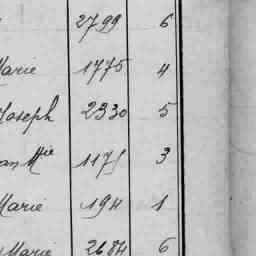 2799 6
Marie 1775 4
Joseph 2330 5
Mie 1175 3
Marie 194 1
Marie 2684 6